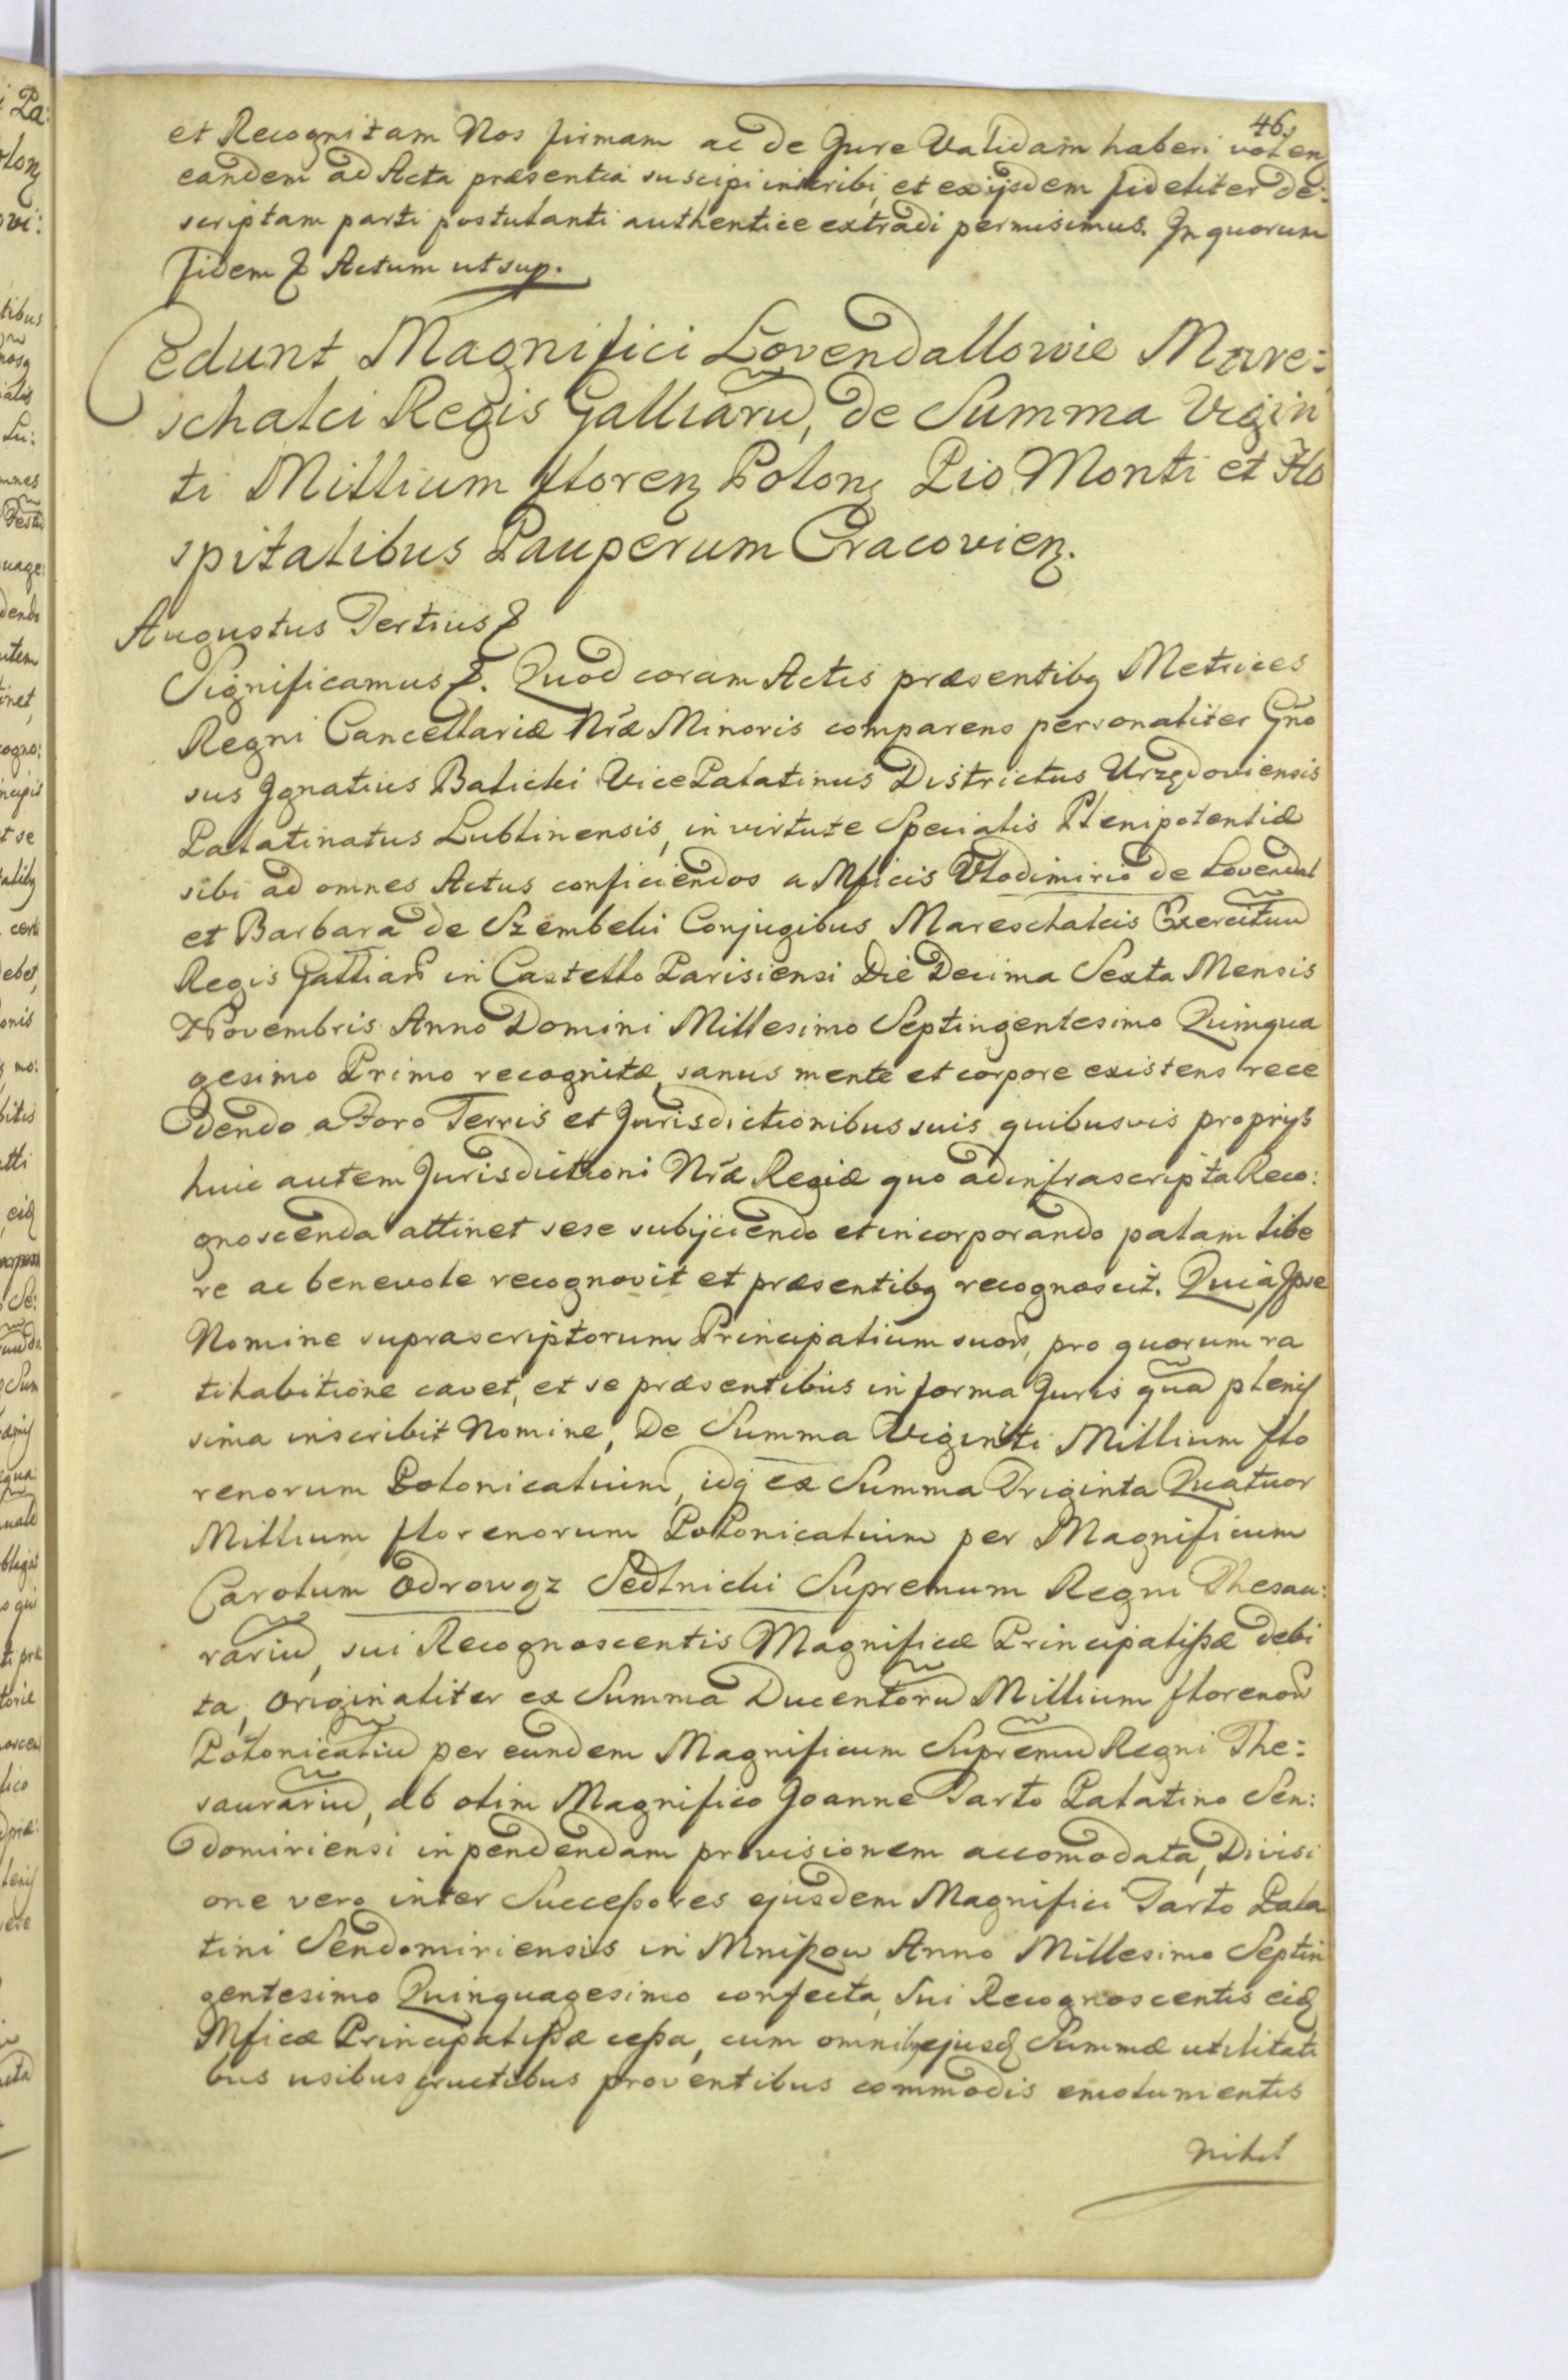 46.
et Recognitam Nos firmam ac de Jure Validam haberi volen
eandem ad Acta præsentia suscipi inscribi, et ex ijsdem fideliter de:
scriptam parti postulanti authentice extradi permisimus. In quorum
fidem & Actum ut sup.
Cedunt Magnifici Lovendallowie Mare:
schalci Regis Galliarũ, de Summa Vigin
ti Millium floren Polon Pio Monti et Ho
spitalibus Pauperum Cracovien.
Augustus Tertius &
Significamus &. Quod coram Actis præsentibq Metrices
Regni Cancellariæ Nræ Minoris comparens personaliter Gño
sus Ignatius Balicki Vice Palatinus Districtus Urzędoviensis
Palatinatus Lublinensis, in virtute Specialis Plenipotentiæ
sibi ad omnes Actus conficiendos a Mficis Vlodimirio de Lovendal
et Barbara de Szembeki Conjugibus Mareschalcis Exercituũ
Regis Galliarũ in Castello Parisiensi Die Decima Sexta Mensis
Novembris Anno Domini Millesimo Septingentesimo Quinqua
gesimo Primo recognitæ, sanus mente et corpore existens rece
dendo a Foro Terris et Jurisdictionibus suis quibusvis proprijs
huic autem Jurisdictioni Nræ Regiæ quo ad infrascripta Reco:
gnoscenda attinet sese subijciendo et incorporando palam libe
re ac benevole recognovit et præsentibq recognoscit. Quia Ipse
Nomine suprascriptorum Principalium suorũ, pro quorum ra
tihabitione cavet, et se præsentibus in forma Juris quã plenis
sima inscribit Nomine, De Summa Viginti Millium flo
renorum Polonicalium, idq ex Summa Triginta Quatuor
Millium florenorum Polonicalium per Magnificum
Carolum Odrowąz Sedlnicki Supremum Regni Thesau:
rariũ, sui Recognoscentis Magnificæ Principalißæ debi
ta, Originaliter ex Summa Ducentorũ Millium florenorũ
Polonicaliũ per eundem Magnificum Supremũ Regni The:
saurariũ, ab olim Magnifico Joanne Tarło Palatino Sen:
domiriensi in pendendam provisionem accomodata, Divisi
one vero inter Succeßores ejusdem Magnifici Tarło Pala
tini Sendomiriensis in Mnißou Anno Millesimo Septin
gentesimo Quinquagesimo confecta, Sui Recognoscentis eid
Mficæ Principalißæ ceßa, cum omnibq ejusd Summæ utilitati
bus usibus fructibus proventibus commodis emolumentis
nihil